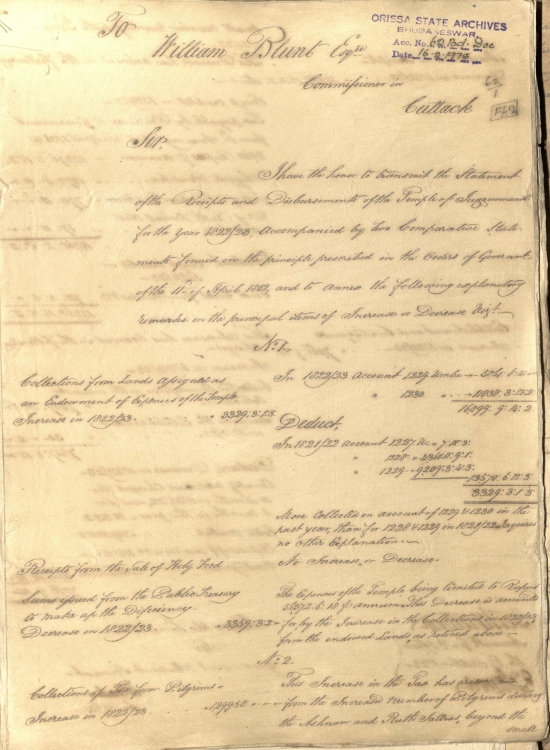 To
William Blunt Esqre
Commissioner in
Cuttack
ORISSA STATE ARCHIVES
BHUBANESWAR
Acc. No.
Date
Sir,
I have the honor to transmit the Statement
of the Receipts and Disbursements of the Temple of Juggurnaut
for the Year 1822/23 Accompanied by two Comparative State-
ments formed on the principle prescribed in the Orders of Governt.
of the 11th of April and to Annex the following explanatory
remarks on the principal items of Increase or Decrease
No. 1
Collections from Lands Assigned as
an Endowment of Expences of the Temple
Increase in 1822/23. 3329. 3. 1. 3.
In 1822/23 Account 1229 Umlee
" 1230
16899. 9. 14. 2
Deduct,
In 1821/22 Account 1227
" 1228
" 1229 9209. 3. 4. 3.
13570. 6. 12. 3.
3329. 3. 1. 3
More Collected on account of 1229 & 1230 in the
past year, than for 1228 & 1229 in 1821/22 Requires
no other Explanation.
Receipts from the Sale of Holy Food
No Increase, or Decrease.
Sums issued from the Public Treasury
to make up the Deficiency
Decrease in 1822/23
The Expences of the Temple being limited to Rupees
annum This Decrease is accounted
for by the Increase in the Collections in 1822/23
from the endowed Lands as noticed above
No. 2.
Collections of Tax from Pilgrims
Increase in 1822/23.
This Increase in the Tax has arisen
from the Increased Number of Pilgrims during
the Ashnan and Ruth Jattras, beyond the
small